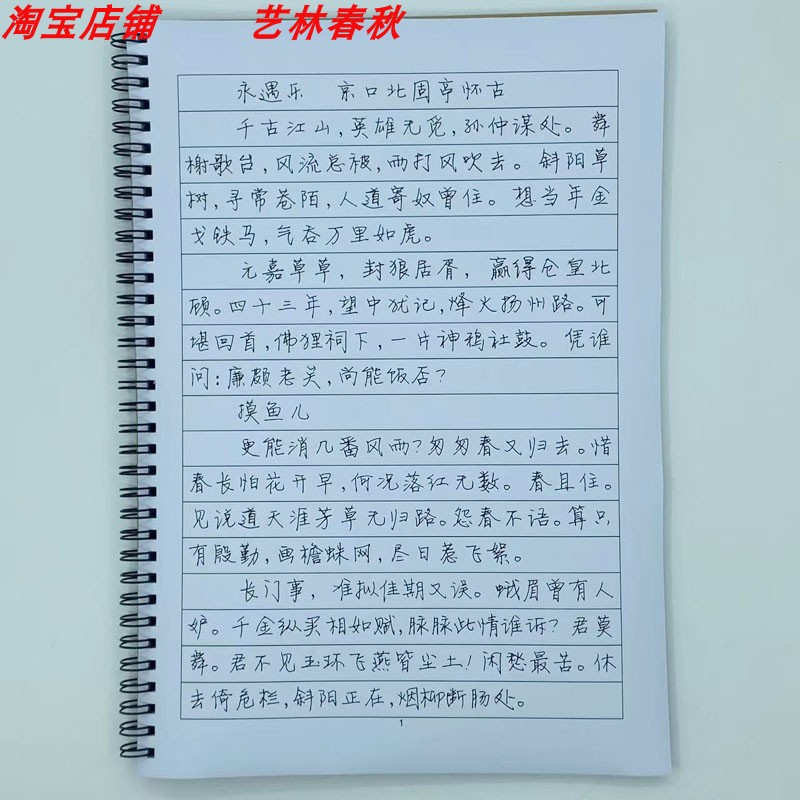 淘宝店铺 艺林春秋
永遇乐 京口北固亭怀古
千古江山,英雄无觅,孙仲谋处。舞
榭歌台,风流总被,雨打风吹去。斜阳草
树,寻常巷陌,人道寄奴曾住。想当年金
戈铁马,气吞万里如虎。
元嘉草草,封狼居胥,赢得仓皇北
顾。四十三年,望中犹记,烽火扬州路。可
堪回首,佛狸祠下,一片神鸦社鼓。凭谁
问:廉颇老矣,尚能饭否?
摸鱼儿
更能消几番风雨?匆匆春又归去。惜
春长怕花开早,何况落红无数。春且住。
见说道天涯芳草无归路。怨春不语。算只
有殷勤,画檐蛛网,尽日惹飞絮。
长门事,准拟佳期又误。蛾眉曾有人
妒。千金纵买相如赋,脉脉此情谁诉?君莫
舞。君不见玉环飞燕皆尘土!闲愁最苦。休
去倚危栏,斜阳正在,烟柳断肠处。
1